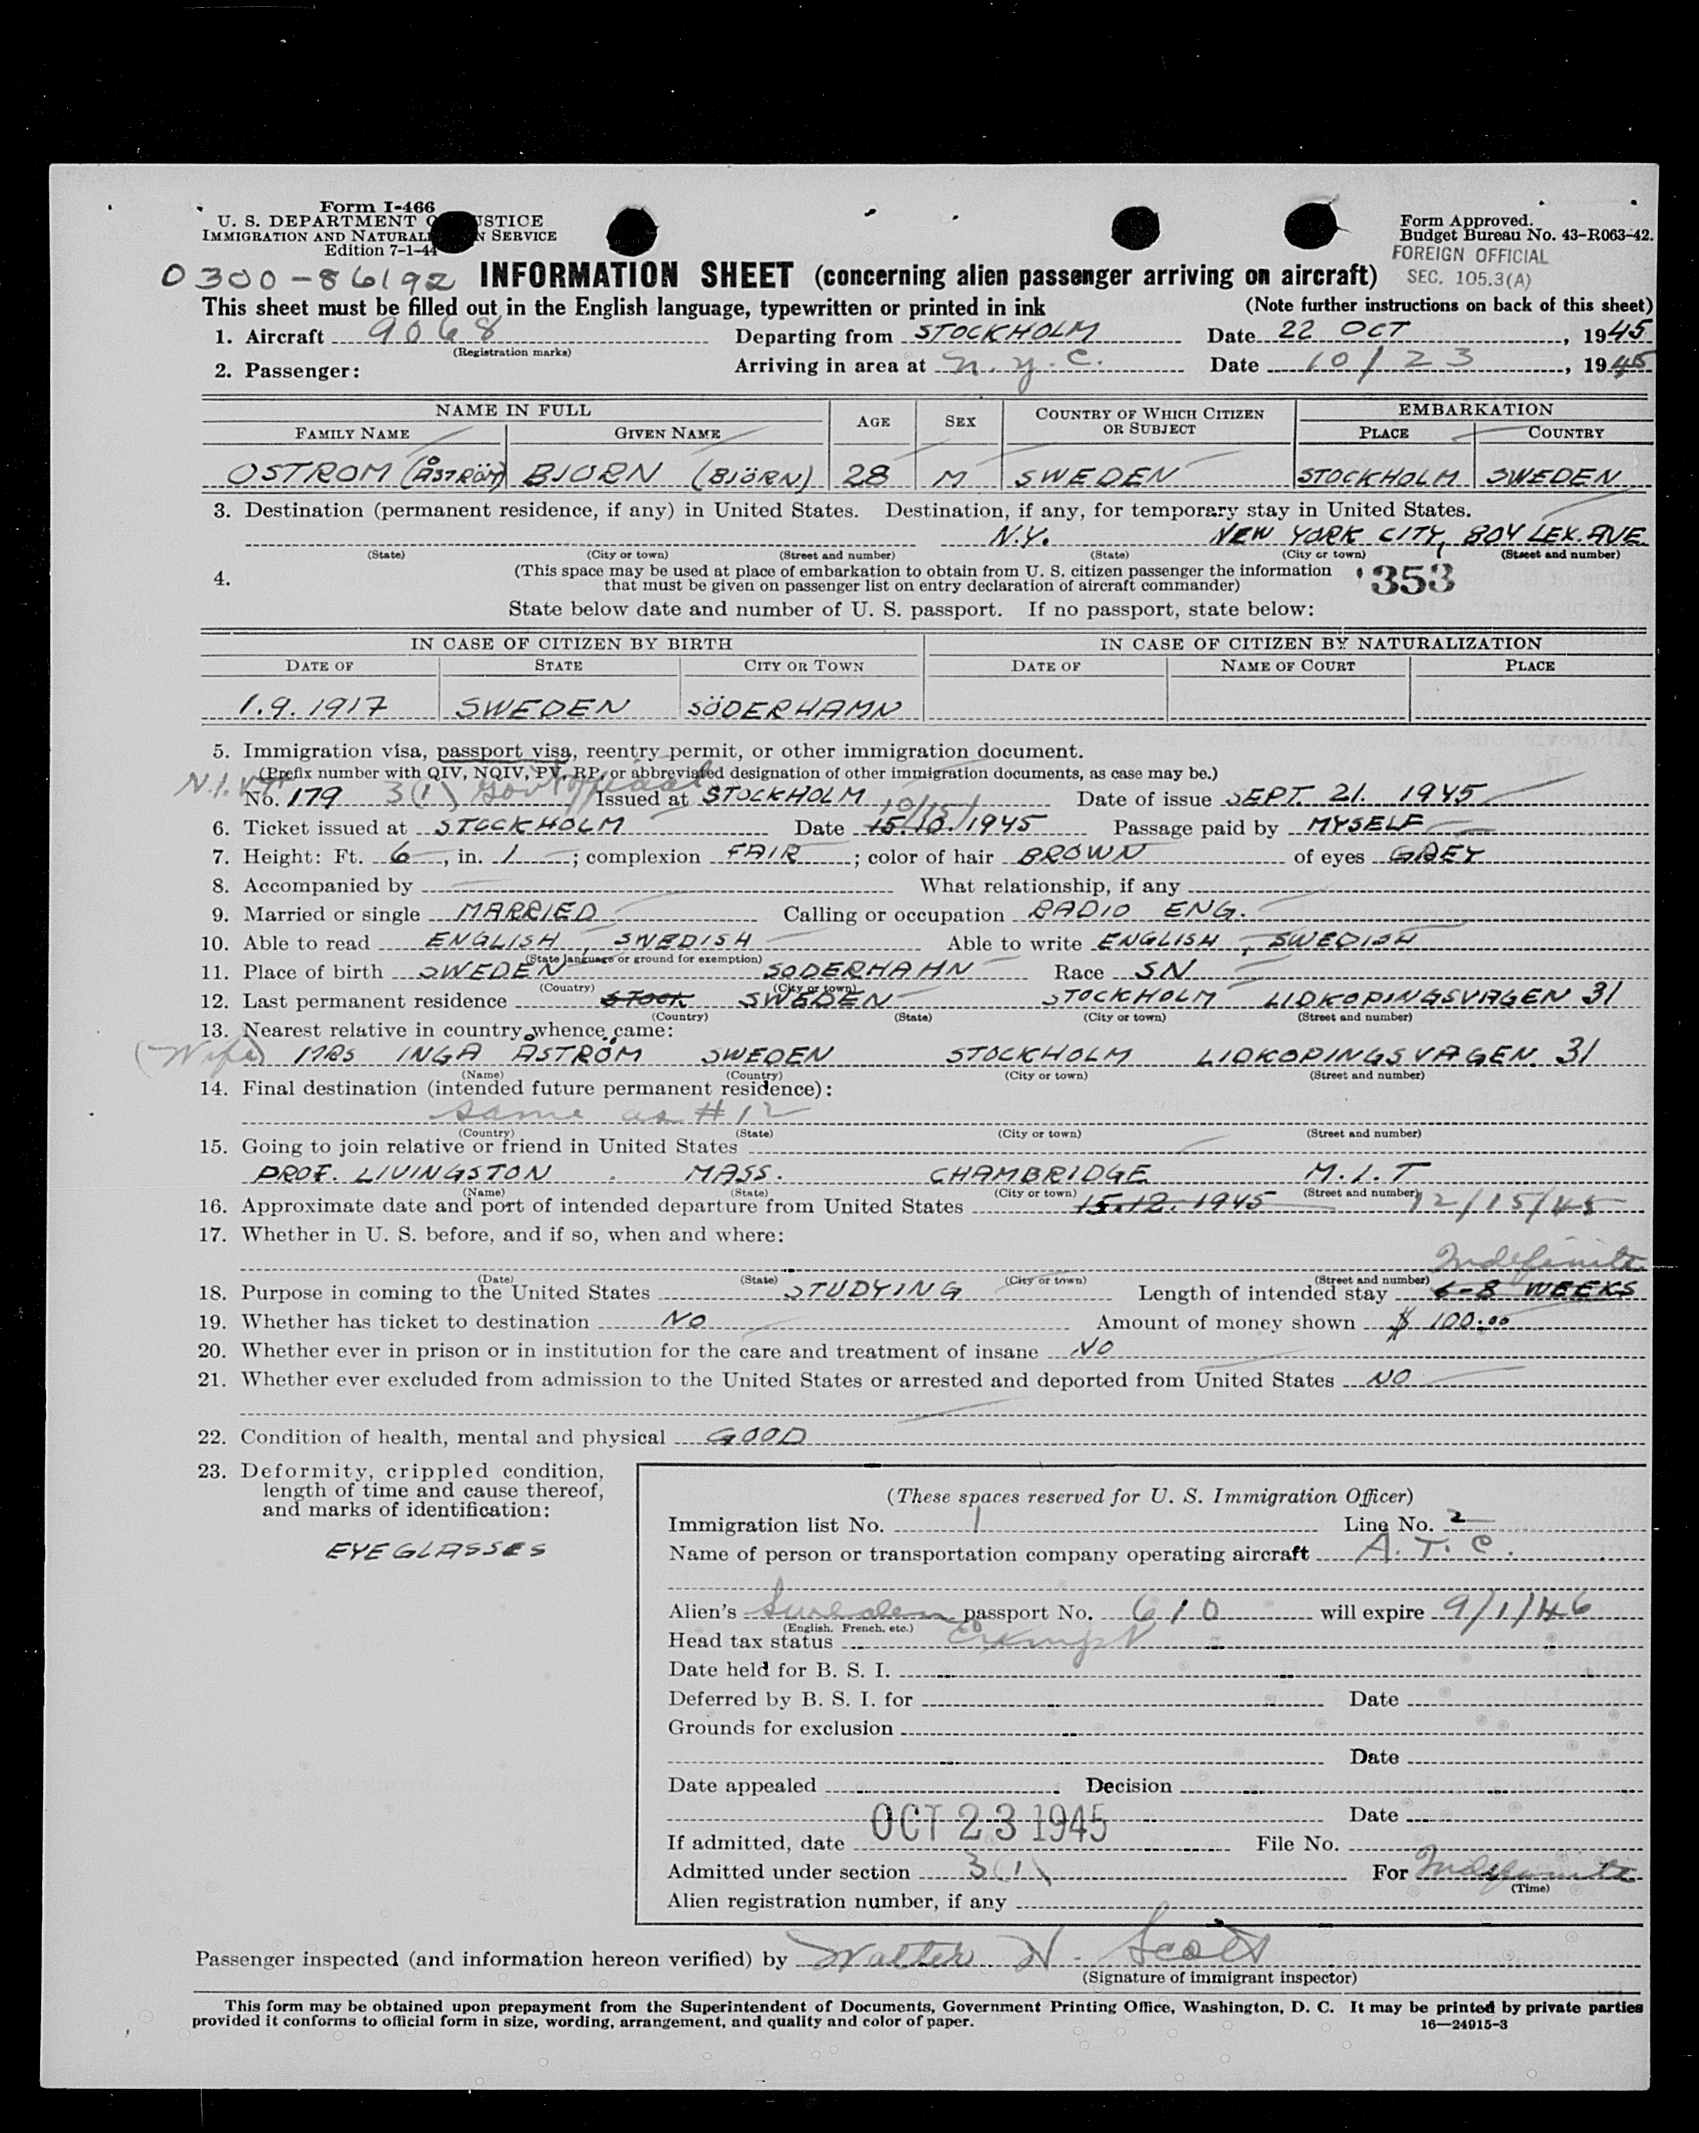 Form I-466
U. S. DEPARTMENT OF JUSTICE
IMMIGRATION AND NATURALIZATION SERVICE
Edition 7-1-44
Form Approved.
Budget Bureau No. 43-R063-42.
FOREIGN OFFICIAL
SEC. 105.3(A)
0300-86192 INFORMATION SHEET (concerning alien passenger arriving on aircraft)
This sheet must be filled out in the English language, typewritten or printed in ink (Note further instructions on back of this sheet)
1. Aircraft 9068 Departing from STOCKHOLM Date 22 OCT, 1945
(Registration marks)
2. Passenger: Arriving in area at N.Y.C. Date 10/23, 1945
NAME IN FULL AGE SEX COUNTRY OF WHICH CITIZEN OR SUBJECT EMBARKATION
FAMILY NAME GIVEN NAME PLACE COUNTRY
OSTROM (ÅSTRÖM) BJORN (BJÖRN) 28 M SWEDEN STOCKHOLM SWEDEN
3. Destination (permanent residence, if any) in United States. Destination, if any, for temporary stay in United States.
N.Y. NEW YORK CITY, 804 LEX. AVE.
(State) (City or town) (Street and number) (State) (City or town) (Street and number)
4. (This space may be used at place of embarkation to obtain from U. S. citizen passenger the information
that must be given on passenger list on entry declaration of aircraft commander) 353
State below date and number of U. S. passport. If no passport, state below:
IN CASE OF CITIZEN BY BIRTH IN CASE OF CITIZEN BY NATURALIZATION
DATE OF STATE CITY OR TOWN DATE OF NAME OF COURT PLACE
1.9.1917 SWEDEN SÖDERHAMN
5. Immigration visa, passport visa, reentry permit, or other immigration document.
(Prefix number with QIV, NQIV, PV, RP, or abbreviated designation of other immigration documents, as case may be.)
No. 179 3(1) Gov't Official Issued at STOCKHOLM Date of issue SEPT. 21. 1945
10/15/
6. Ticket issued at STOCKHOLM Date 15.10.1945 Passage paid by MYSELF
7. Height: Ft. 6, in. 1; complexion FAIR; color of hair BROWN of eyes GREY
8. Accompanied by What relationship, if any
9. Married or single MARRIED Calling or occupation RADIO ENG.
10. Able to read ENGLISH, SWEDISH Able to write ENGLISH, SWEDISH
(State language or ground for exemption)
11. Place of birth SWEDEN SODERHAHN Race SN
(Country) (City or town)
12. Last permanent residence STOCK SWEDEN STOCKHOLM LIDKOPINGSVAGEN 31
(Country) (State) (City or town) (Street and number)
13. Nearest relative in country whence came:
(Wife) MRS INGA ÅSTRÖM SWEDEN STOCKHOLM LIDKOPINGSVAGEN 31
(Name) (Country) (City or town) (Street and number)
14. Final destination (intended future permanent residence):
same as #12
(Country) (State) (City or town) (Street and number)
15. Going to join relative or friend in United States
PROF. LIVINGSTON MASS. CHAMBRIDGE M.I.T
(Name) (State) (City or town) (Street and number)
16. Approximate date and port of intended departure from United States 15.12.1945 12/15/45
17. Whether in U. S. before, and if so, when and where:
Indefinite
(Date) (State) (City or town) (Street and number)
18. Purpose in coming to the United States STUDYING Length of intended stay 6-8 WEEKS
19. Whether has ticket to destination NO Amount of money shown $ 100.00
20. Whether ever in prison or in institution for the care and treatment of insane NO
21. Whether ever excluded from admission to the United States or arrested and deported from United States NO
22. Condition of health, mental and physical GOOD
23. Deformity, crippled condition,
length of time and cause thereof,
and marks of identification:
EYEGLASSES
(These spaces reserved for U. S. Immigration Officer)
Immigration list No. 1 Line No. 2
Name of person or transportation company operating aircraft A.T.C.
Alien's Sweden passport No. 610 will expire 9/1/46
(English, French, etc.)
Head tax status Exempt
Date held for B. S. I.
Deferred by B. S. I. for Date
Grounds for exclusion
Date
Date appealed Decision
Date
If admitted, date OCT 23 1945 File No.
Admitted under section 3(1) For Indefinite
(Time)
Alien registration number, if any
Passenger inspected (and information hereon verified) by Walter N. Scott
(Signature of immigrant inspector)
This form may be obtained upon prepayment from the Superintendent of Documents, Government Printing Office, Washington, D. C. It may be printed by private parties
provided it conforms to official form in size, wording, arrangement, and quality and color of paper. 16—24915-3